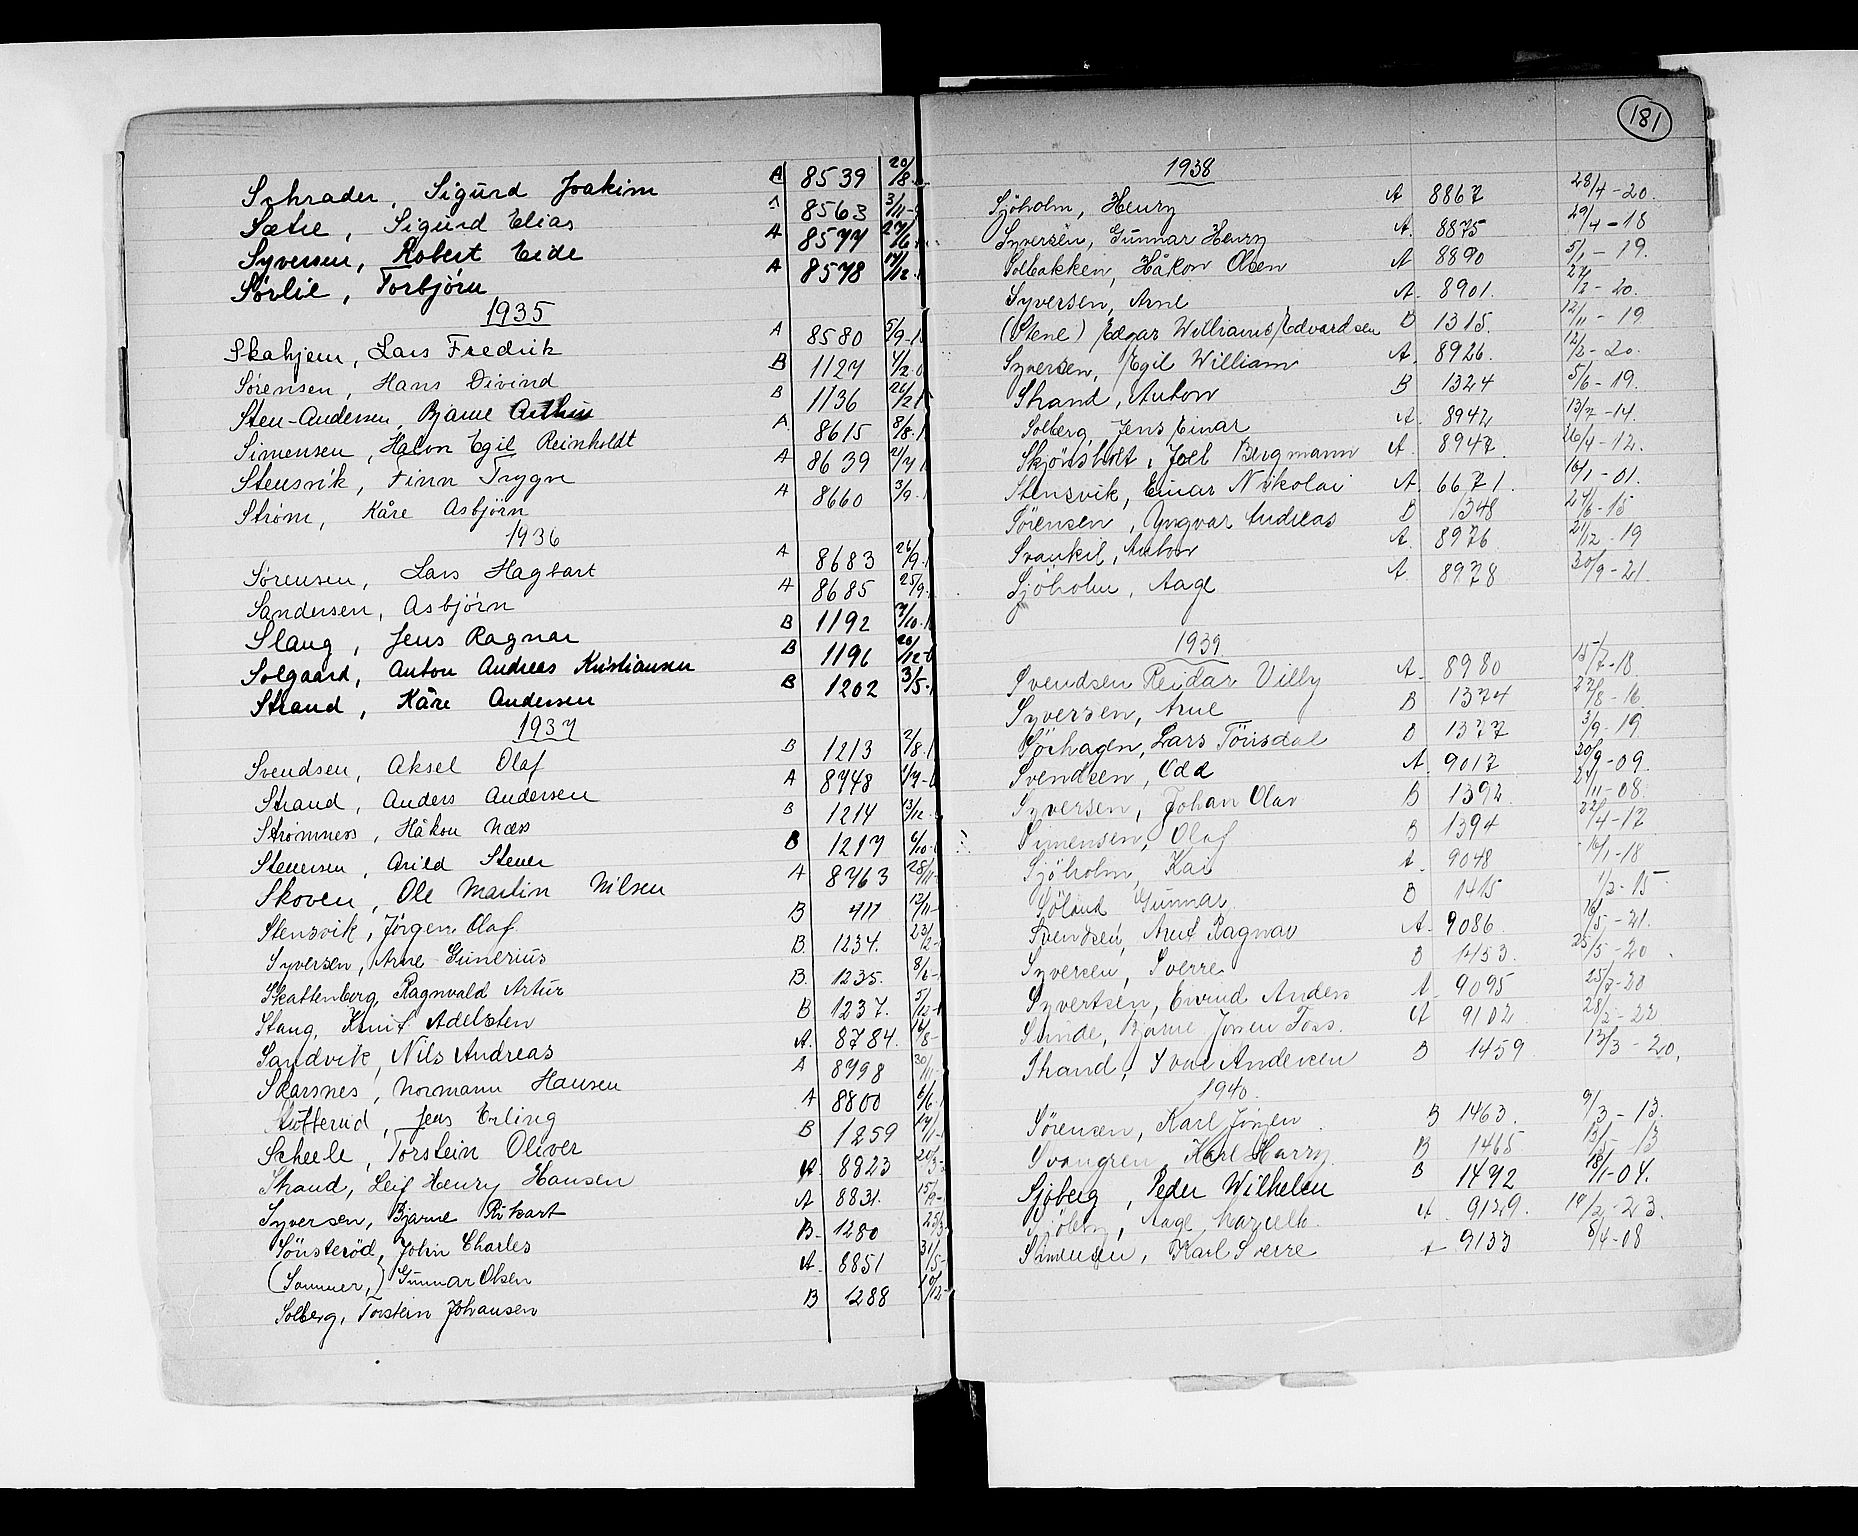 Schrader, Sigurd Joakim A 8539 20/8
Sætre, Sigurd Elias A 8563 3/11
Syversen, Robert Eide A 8577 27/6
Sørlie, Torbjörn A 8578 17/12
1935
Skahjem, Lars Fredrik A 8580 5/9
Sørensen, Hans Öivind B 1127 4/2
Sten-Andersen, Bjarne Arthur B 1136 26/2
Simensen, Halvon Egil Reinholdt A 8615 8/8
Stensvik, Finn Trygve A 8639 21/7
Strøm, Kåre Asbjörn A 8660 3/9
1936
Sørensen, Lars Hagbart A 8683 26/9
Sandersen, Asbjörn A 8685 25/9
Slang, Jens Ragnar B 1192 7/10
Solgaard, Anton Andreas Kristiansen B 1196 20/12
Strand, Kåre Andersen B 1202 3/5
1937
Svendsen, Aksel Olaf B 1213 2/8
Strand, Anders Andersen A 8748 1/7
Strømness, Håkon Næss B 1214 13/12
Stenersen, Arild Stener B 1217 6/10
Skoven, Ole Martin Nilsen A 8763 28/11
Stensvik, Jörgen Olaf B 411 12/11
Syversen, Arne Gunerius B 1234. 23/2
Skattenborg, Ragnvald Artur B. 1235. 8/6
Stang, Knut Adelsten B 1237. 5/12
Sandvik, Nils Andreas A. 8784. 16/8
Skarsnes, Normann Hansen A 8798 30/11
Stötterud, Jens Erling A 8800 6/6
Scheele, Torstein Oliver B 1259 17/11
Strand, Leif Henry Hansen A. 8823 20/3
Syversen, Bjarne Rikart A 8831. 15/9
Sönsteröd, John Charles B. 1280 25/3
(Sommer,) Gunnar Olsen A. 8851 31/5
Solberg, Torstein Johansen B 1288 10/12
181
1938
Sjöholm, Henry A 8867 28/4-20.
Syversen, Gunnar Henry A. 8875 29/4-18
Solbakken, Håkon Olsen A 8890 5/1-19.
Syversen, Arne A. 8901. 27/2-20.
(Stene) Edgar Williams Edvardsen B 1315. 12/11-19
Syversen, Egil William A. 8926. 12/2-20.
Strand, Anton B 1324 5/6-19.
Solberg, Jens Einar A. 8942 13/7-14.
Skjönsholt, Joel Bergmann A. 8947. 26/4-12.
Stensvik, Einar Nikolai A. 6671. 16/1-01.
Sørensen, Yngvar Andreas B 1348 27/6-15
Svankil, Anton A. 8976 21/12-19
Sjöholm, Aage A. 8978 30/9-21.
1939
Svendsen Reidar Villy A. 8980 15/7-18
Syversen, Arne B 1374 22/8-16
Sörhagen, Lars Tönsdal B 1377 3/9-19.
Svendsen, Odd A. 9017 30/9-09.
Syversen, Johan Olav B 1392. 27/11-08.
Simensen, Olaf B 1394 22/4-17
Sjöholm, Kai A. 9048 16/1-18
Söland Gunnar B 1415 1/2-15
Svendsen, Arnt Ragnar A. 9086. 16/5-21.
Syversen, Sverre B 1453. 25/5-20.
Syvertsen, Eivind Anders A. 9095 25/7-20
Sunde, Bjarne Jonsen Foss. A 9102 28/3-22
Strand, Ivar Andersen B 1459. 13/3-20.
1940.
Sørensen, Karl Jörgen B 1463. 9/3-13.
Svangren, Karl Harry B 1465 12/5-13
Sjöberg, Peder Wilhelm B 1492 18/1-04.
Sjöberg, Aage Marcelh. A. 9129. 19/2-23.
Simensen, Karl Sverre A 9133 8/4-08